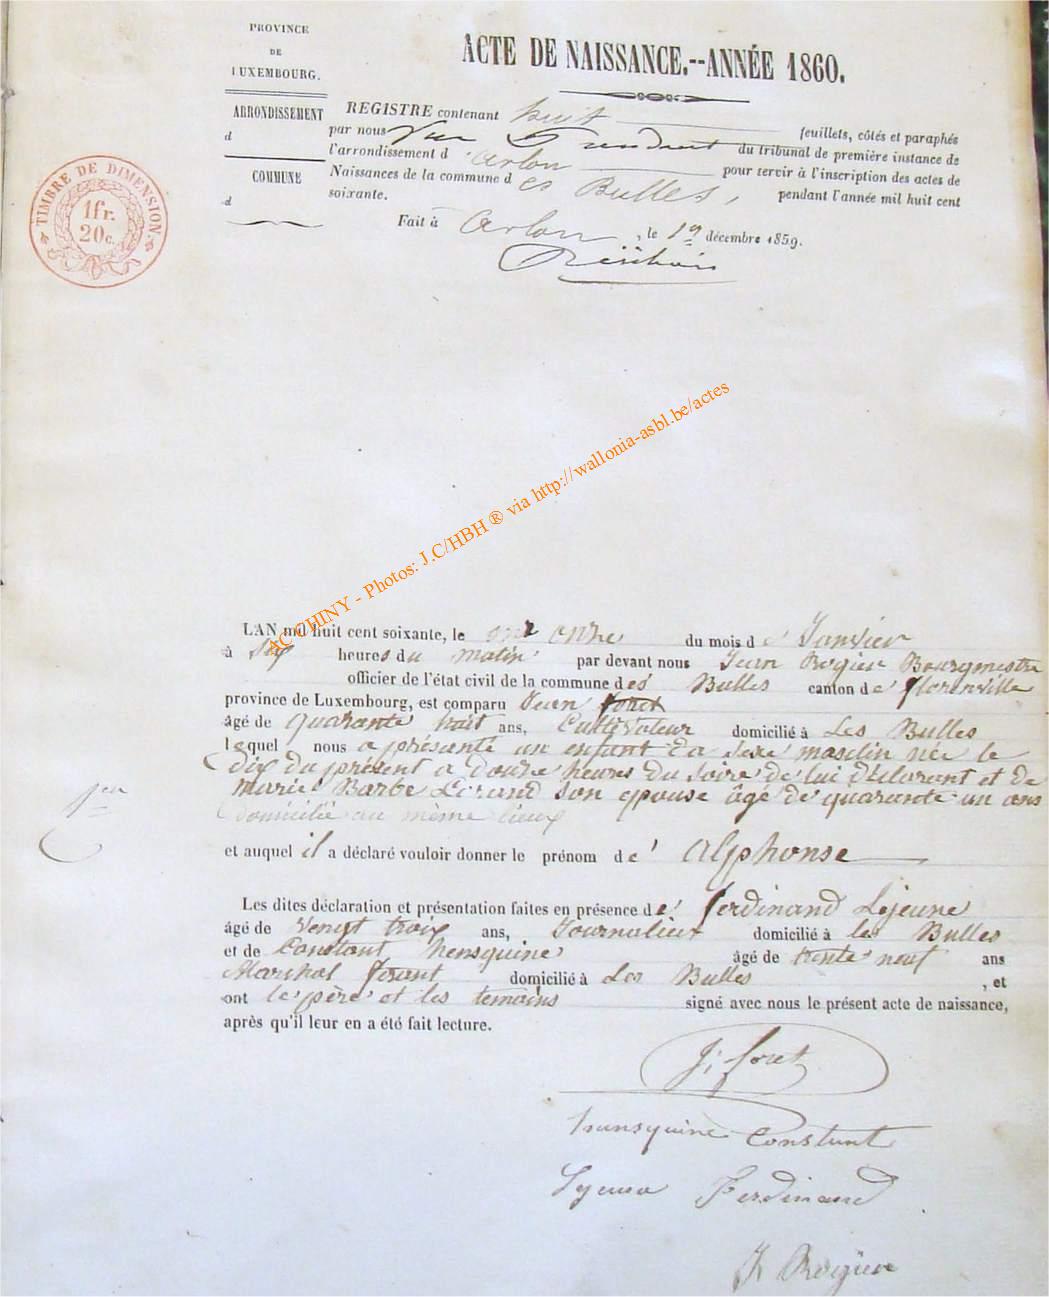 PROVINCE
DE
LUXEMBOURG.
ARRONDISSEMENT
d
COMMUNE
d
TIMBRE DE DIMENSION.
1fr.
20c.
ACTE DE NAISSANCE.--ANNÉE 1860.
REGISTRE contenant huit feuillets, côtés et paraphés
par nous du tribunal de première instance de
l'arrondissement d'Arlon pour servir à l'inscription des actes de
Naissances de la commune des Bulles, pendant l'année mil huit cent
soixante.
Fait à Arlon, le décembre 1859.
AC CHINY - Photos: J.C/HBH ® via http://wallonia-asbl.be/actes
LAN mil huit cent soixante, le onze du mois de Janvier
à heures du matin par devant nous Jean Rogier Bourgmestre
officier de l'état civil de la commune des Bulles canton de florenville
province de Luxembourg, est comparu Jean foret
âgé de quarante huit ans, Cultivateur domicilié à Les Bulles
lequel nous a présenté un enfant da sexe masclin née le
dix du présent a douze heures du soire de lui déclarant et de
marie Barbe son epouse âgé de quarante un ans
domicilié au même lieux
et auquel il a déclaré vouloir donner le prénom de Alphonse
Les dites déclaration et présentation faites en présence de ferdinand Lejeune
âgé de troix ans, Journalier domicilié à les Bulles
et de Constant hensquine âgé de trente neuf ans
Marchal ferant domicilié à Les Bulles , et
ont le père et les temoins signé avec nous le présent acte de naissance,
après qu'il leur en a été fait lecture.
J; foret
Constant
Ferdinand
J Rogier